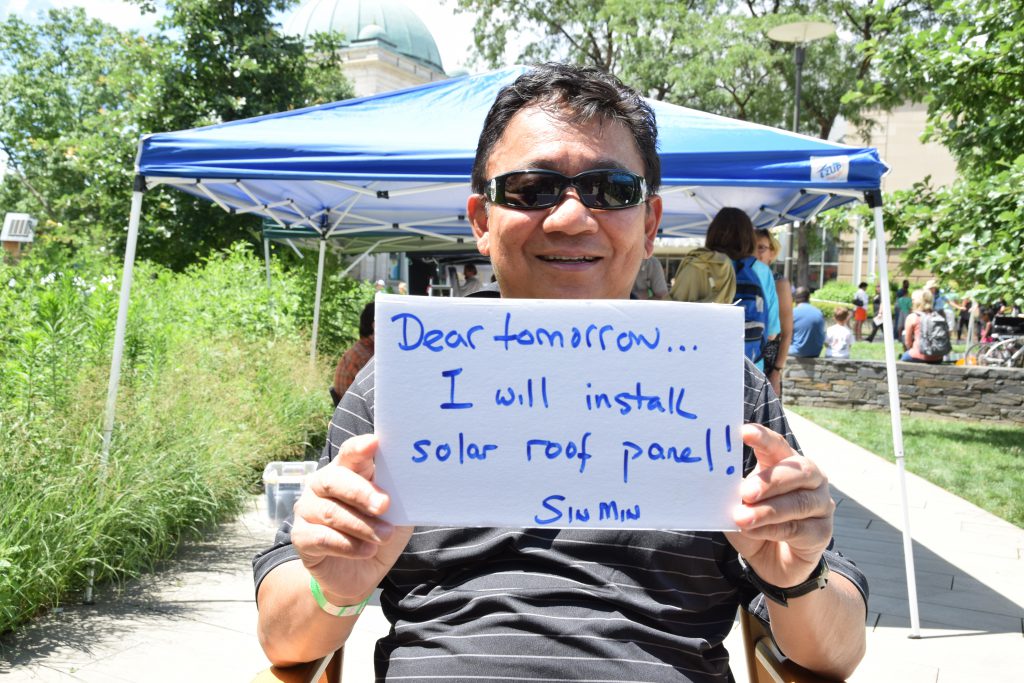 Dear tomorrow...
I will install
solar roof panel!
Sin Min
E-Z UP